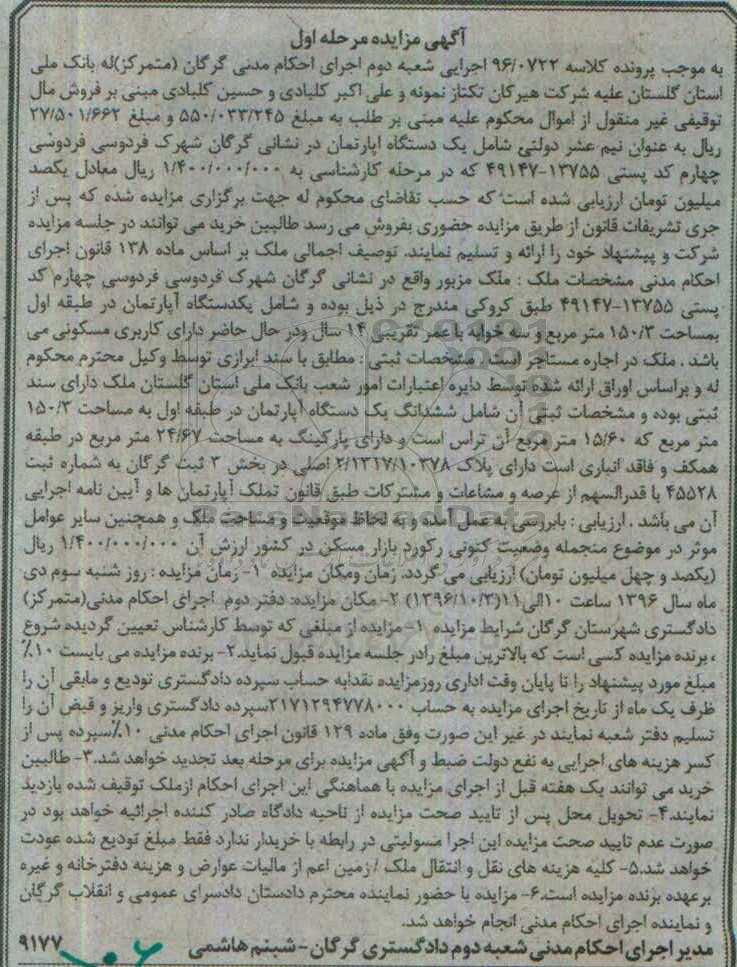 آگهی مزایده مرحله اول
به موجب پرونده کلاسه ۹۶/۰۷۲۲ اجرایی شعبه دوم اجرای احکام مدنی گرگان (متمرکز)له بانک ملی
استان گلستان علیه شرکت هیرکان تکتاز نمونه و علی اکبر کلبادی و حسین کلبادی مبنی بر فروش مال
توقیفی غیر منقول از اموال محکوم علیه مبنی بر طلب به مبلغ ۵۵۰/۰۳۳/۲۴۵ و مبلغ ۲۷/۵۰۱/۶۶۲
ریال به عنوان نیم عشر دولتی شامل یک دستگاه اپارتمان در نشانی گرگان شهرک فردوسی فردوسی
چهارم کد پستی ۱۳۷۵۵-۴۹۱۴۷ که در مرحله کارشناسی به ۱/۴۰۰/۰۰۰/۰۰۰ ریال معادل یکصد
میلیون تومان ارزیابی شده است که حسب تقاضای محکوم له جهت برگزاری مزایده شده که پس از
جری تشریفات قانون از طریق مزایده حضوری بفروش می رسد طالبین خرید می توانند در جلسه مزایده
شرکت و پیشنهاد خود را ارائه و تسلیم نمایند. توصیف اجمالی ملک بر اساس ماده ۱۳۸ قانون اجرای
احکام مدنی مشخصات ملک : ملک مزبور واقع در نشانی گرگان شهرک فردوسی فردوسی چهارم کد
پستی ۱۳۷۵۵-۴۹۱۴۷ طبق کروکی مندرج در ذیل بوده و شامل یکدستگاه آپارتمان در طبقه اول
بمساحت ۱۵۰/۳ متر مربع و سه خوابه با عمر تقریبی ۱۴ سال ودر حال حاضر دارای کاربری مسکونی می
باشد . ملک در اجاره مستاجر است . مشخصات ثبتی : مطابق با سند ابرازی توسط وکیل محترم محکوم
له و براساس اوراق ارائه شده توسط دایره اعتبارات امور شعب بانک ملی استان گلستان ملک دارای سند
ثبتی بوده و مشخصات ثبتی آن شامل ششدانگ یک دستگاه آپارتمان در طبقه اول به مساحت ۱۵۰/۳
متر مربع که ۱۵/۶۰ متر مربع آن تراس است و دارای پارکینگ به مساحت ۲۴/۶۷ متر مربع در طبقه
همکف و فاقد انباری است دارای پلاک ۲/۱۳۱۷/۱۰۳۷۸ اصلی در بخش ۳ ثبت گرگان به شماره ثبت
۴۵۵۲۸ با قدرالسهم از عرصه و مشاعات و مشترکات طبق قانون تملک آپارتمان ها و آیین نامه اجرایی
آن می باشد . ارزیابی : بابررسی به عمل آمده و به لحاظ موقعیت و مساحت ملک و همچنین سایر عوامل
موثر در موضوع منجمله وضعیت کنونی رکورد بازار مسکن در کشور ارزش آن ۱/۴۰۰/۰۰۰/۰۰۰ ریال
(یکصد و چهل میلیون تومان) ارزیابی می گردد. زمان ومکان مزایده ۱- زمان مزایده : روز شنبه سوم دی
ماه سال ۱۳۹۶ ساعت ۱۰الی۱۱(۱۳۹۶/۱۰/۳) ۲- مکان مزایده: دفتر دوم اجرای احکام مدنی(متمرکز)
دادگستری شهرستان گرگان شرایط مزایده ۱- مزایده از مبلغی که توسط کارشناس تعیین گردیده شروع
، برنده مزایده کسی است که بالاترین مبلغ رادر جلسه مزایده قبول نماید.۲- برنده مزایده می بایست ۱۰٪
مبلغ مورد پیشنهاد را تا پایان وقت اداری روزمزایده نقدابه حساب سپرده دادگستری تودیع و مابقی آن را
ظرف یک ماه از تاریخ اجرای مزایده به حساب ۲۱۷۱۲۹۴۷۷۸۰۰۰سپرده دادگستری واریز و قبض آن را
تسلیم دفتر شعبه نمایند در غیر این صورت وفق ماده ۱۲۹ قانون اجرای احکام مدنی ۱۰٪سپرده پس از
کسر هزینه های اجرایی به نفع دولت ضبط و آگهی مزایده برای مرحله بعد تجدید خواهد شد.۳- طالبین
خرید می توانند یک هفته قبل از اجرای مزایده با هماهنگی این اجرای احکام ازملک توقیف شده بازدید
نمایند.۴- تحویل محل پس از تایید صحت مزایده از ناحیه دادگاه صادر کننده اجرائیه خواهد بود در
صورت عدم تایید صحت مزایده این اجرا مسولیتی در رابطه با خریدار ندارد فقط مبلغ تودیع شده عودت
خواهد شد.۵- کلیه هزینه های نقل و انتقال ملک / زمین اعم از مالیات عوارض و هزینه دفترخانه و غیره
برعهده برنده مزایده است.۶- مزایده با حضور نماینده محترم دادستان دادسرای عمومی و انقلاب گرگان
و نماینده اجرای احکام مدنی انجام خواهد شد.
مدیر اجرای احکام مدنی شعبه دوم دادگستری گرگان - شبنم هاشمی ۹۱۷۷
ParsNamadData